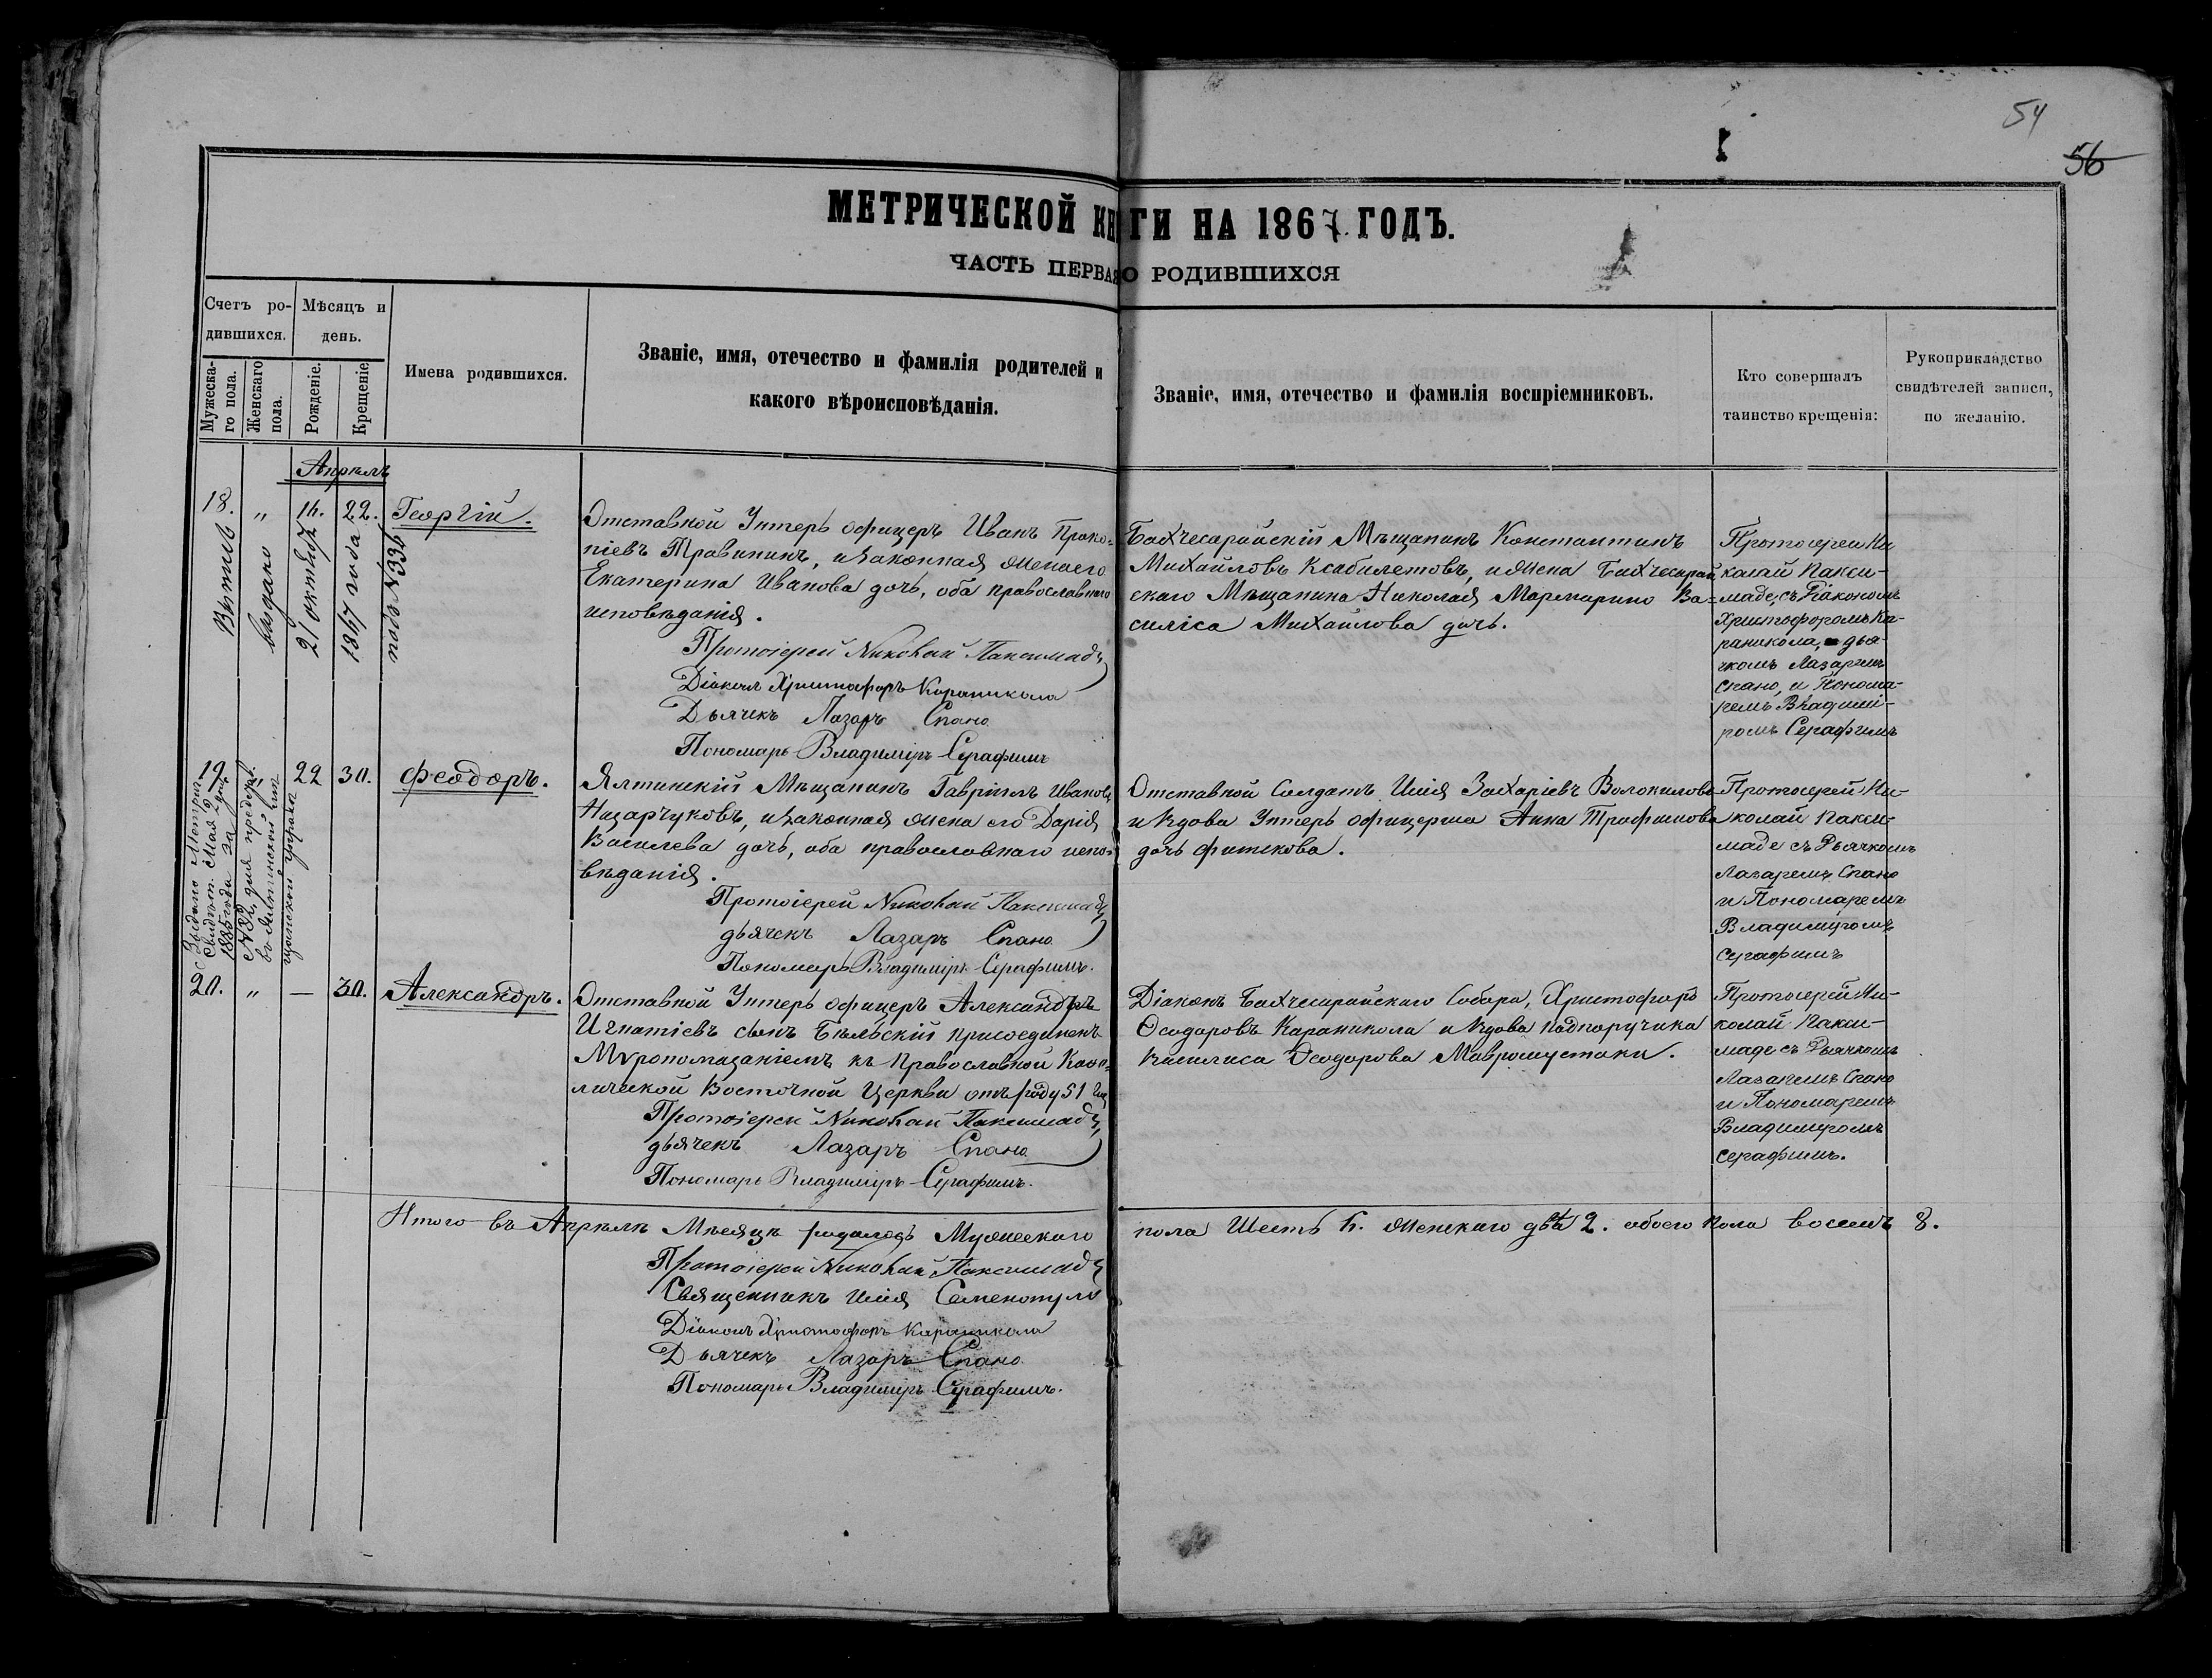 54
56
МЕТРИЧЕСКОЙ КНИГИ НА 1867 ГОДЪ.
ЧАСТЬ ПЕРВАЯ О РОДИВШИХСЯ
Счетъ ро-
дившихся.
Мужеска-
го пола.
Женскаго
пола.
Мѣсяцъ и
день.
Рожденіе.
Крещеніе
Имена родившихся.
Званіе, имя, отечество и фамилія родителей и
какого вѣроисповѣданія.
Званіе, имя, отечество и фамилія воспріемниковъ.
Кто совершалъ
таинство крещенія:
Рукоприкладство
свидѣтелей записи,
по желанію.
Апрѣль
18. " 16. 22. Георгій.
выдано
21 октября
1867 года
подъ N 336
Отставной Унтеръ офицеръ Иванъ Проко-
піевъ Травининъ, и законная жена его
Екатерина Иванова дочь, оба православнаго
исповѣданія.
Протоіерей Николай Паксимади
Діаконъ Христофоръ Караникола
Дьячекъ Лазарь Спано
Пономарь Владиміръ Серафимъ
Бахчесарайскій Мѣщанинъ Константинъ
Михайловъ Ксабилетовъ, и жена Бахчесарай
скаго Мѣщанина Николая Мармарино Ва-
силіса Михайлова дочь.
Протоіерей Ни
колай Пакси-
маде, съ Діакономъ
Христофоромъ Ка-
раникола, дья-
чкомъ Лазаремъ
Спано, и Понома-
ремъ Владимі-
ромъ Серафимъ
19. 22 30. Феодоръ.
Выдано Метрич.
Свидѣт. Мая 2 дня
1885 года за
для представ.
Ялтинскій Мѣщанинъ Гавріилъ Ивановъ
Назарчуковъ, и законная жена его Дарія
Василева дочь, оба православнаго испо-
вѣданія.
Протоіерей Николай Паксимади
дьячекъ Лазарь Спано
Пономарь Владиміръ Серафимъ.
Отставной Солдатъ Илія Захаріевъ Волокилово
и вдова Унтеръ офицерша Анна Трофимова
дочь Фитскова.
Протоіерей Ни-
колай Пакси-
маде съ Дьячкомъ
Лазаремъ Спано
и Пономаремъ
Владиміромъ
Серафимъ
20. " — 30. Александръ.
Отставной Унтеръ офицеръ Александръ
Игнатіевъ сынъ Бѣльскій присоединенъ
Мѵропомазаніемъ къ Православной Каѳо-
лической Восточной Церкви отъ роду 51 год
Протоіерей Николай Паксимади
дьячекъ Лазарь Спано
Пономарь Владиміръ Серафимъ.
Діаконъ Бахчесарайскаго Собора, Христофоръ
Ѳеодоровъ Караникола и вдова подпоручика
Василиса Ѳеодорова Мавромустаки.
Протоіерей Ни-
колай Пакси-
маде съ Дьячкомъ
Лазаремъ Спано
и Пономаремъ
Владиміромъ
Серафимъ.
Итого въ Апрѣлѣ Мѣсяцѣ родилось Мужескаго пола Шесть 6. женскаго два 2. обоего пола восемь 8.
Протоіерей Николай Паксимади
Священникъ Илія Саменотуло
Діаконъ Христофоръ Караникола
Дьячекъ Лазарь Спано
Пономарь Владиміръ Серафимъ.